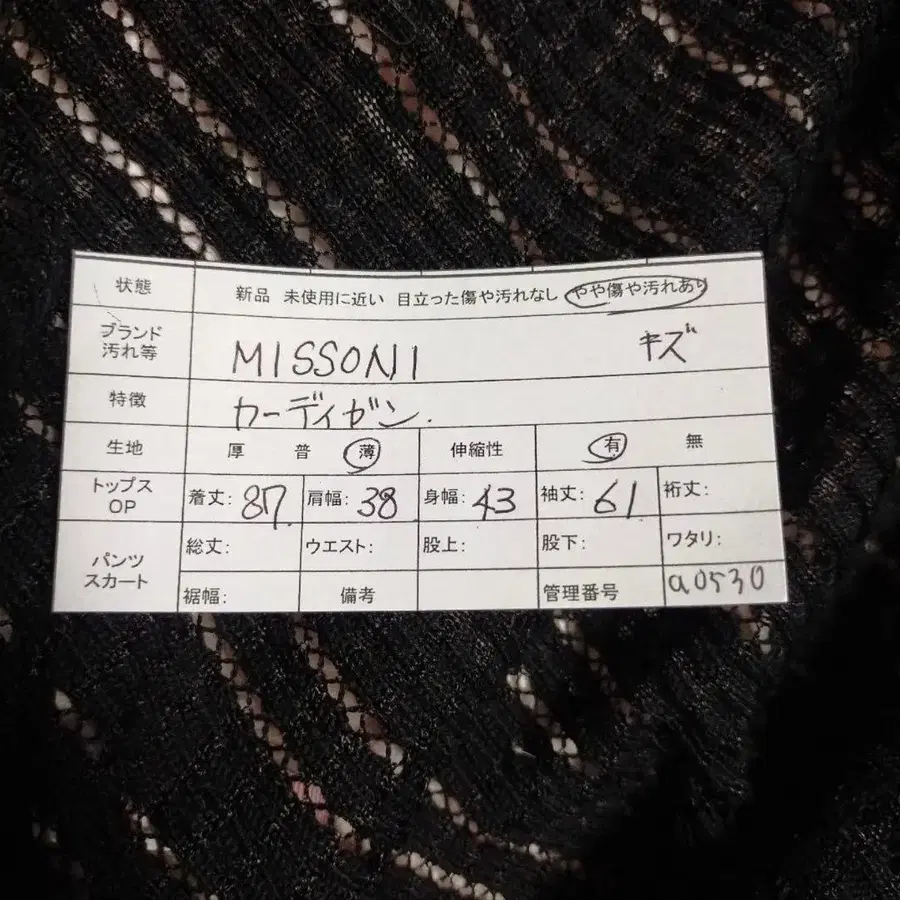 状態 新品 未使用に近い 目立った傷や汚れなし やや傷や汚れあり
ブランド
汚れ等 MISSONI キズ
特徴 カーディガン.
生地 厚 普 薄 伸縮性 有 無
トップス
OP 着丈: 87 肩幅: 38 身幅: 43 袖丈: 61 裄丈:
パンツ
スカート 総丈: ウエスト: 股上: 股下: ワタリ:
裾幅: 備考 管理番号 a0530